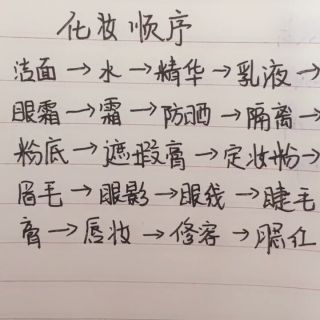 化妆顺序
洁面→水→精华→乳液→
眼霜→霜→防晒→隔离→
粉底→遮瑕膏→定妆粉→
眉毛→眼影→眼线→睫毛
膏→唇妆→修容→腮红